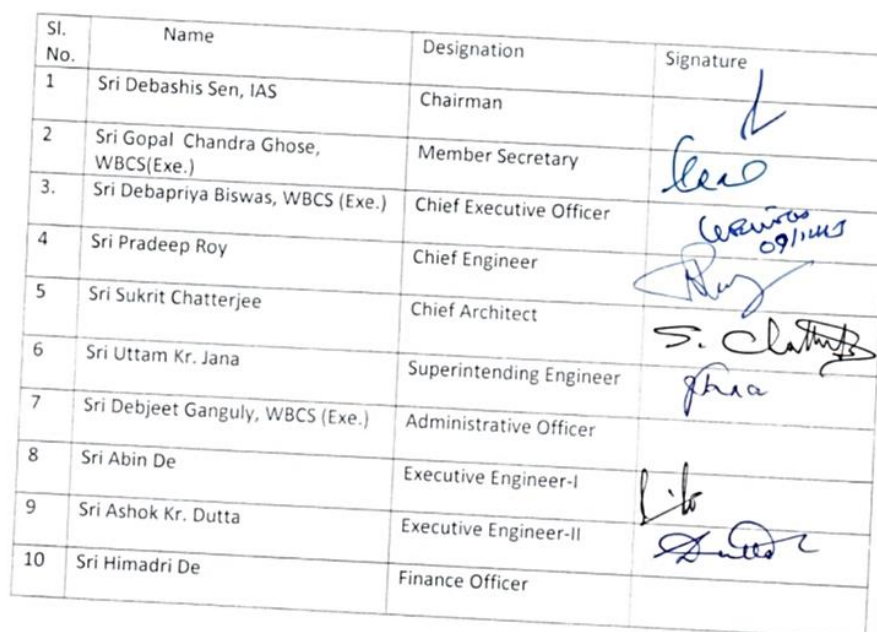 Sl. No. Name Designation Signature
1 Sri Debashis Sen, IAS Chairman
2 Sri Gopal Chandra Ghose, WBCS(Exe.) Member Secretary
3. Sri Debapriya Biswas, WBCS (Exe.) Chief Executive Officer
4 Sri Pradeep Roy Chief Engineer
5 Sri Sukrit Chatterjee Chief Architect S. Chatterjee
6 Sri Uttam Kr. Jana Superintending Engineer
7 Sri Debjeet Ganguly, WBCS (Exe.) Administrative Officer
8 Sri Abin De Executive Engineer-I
9 Sri Ashok Kr. Dutta Executive Engineer-II
10 Sri Himadri De Finance Officer